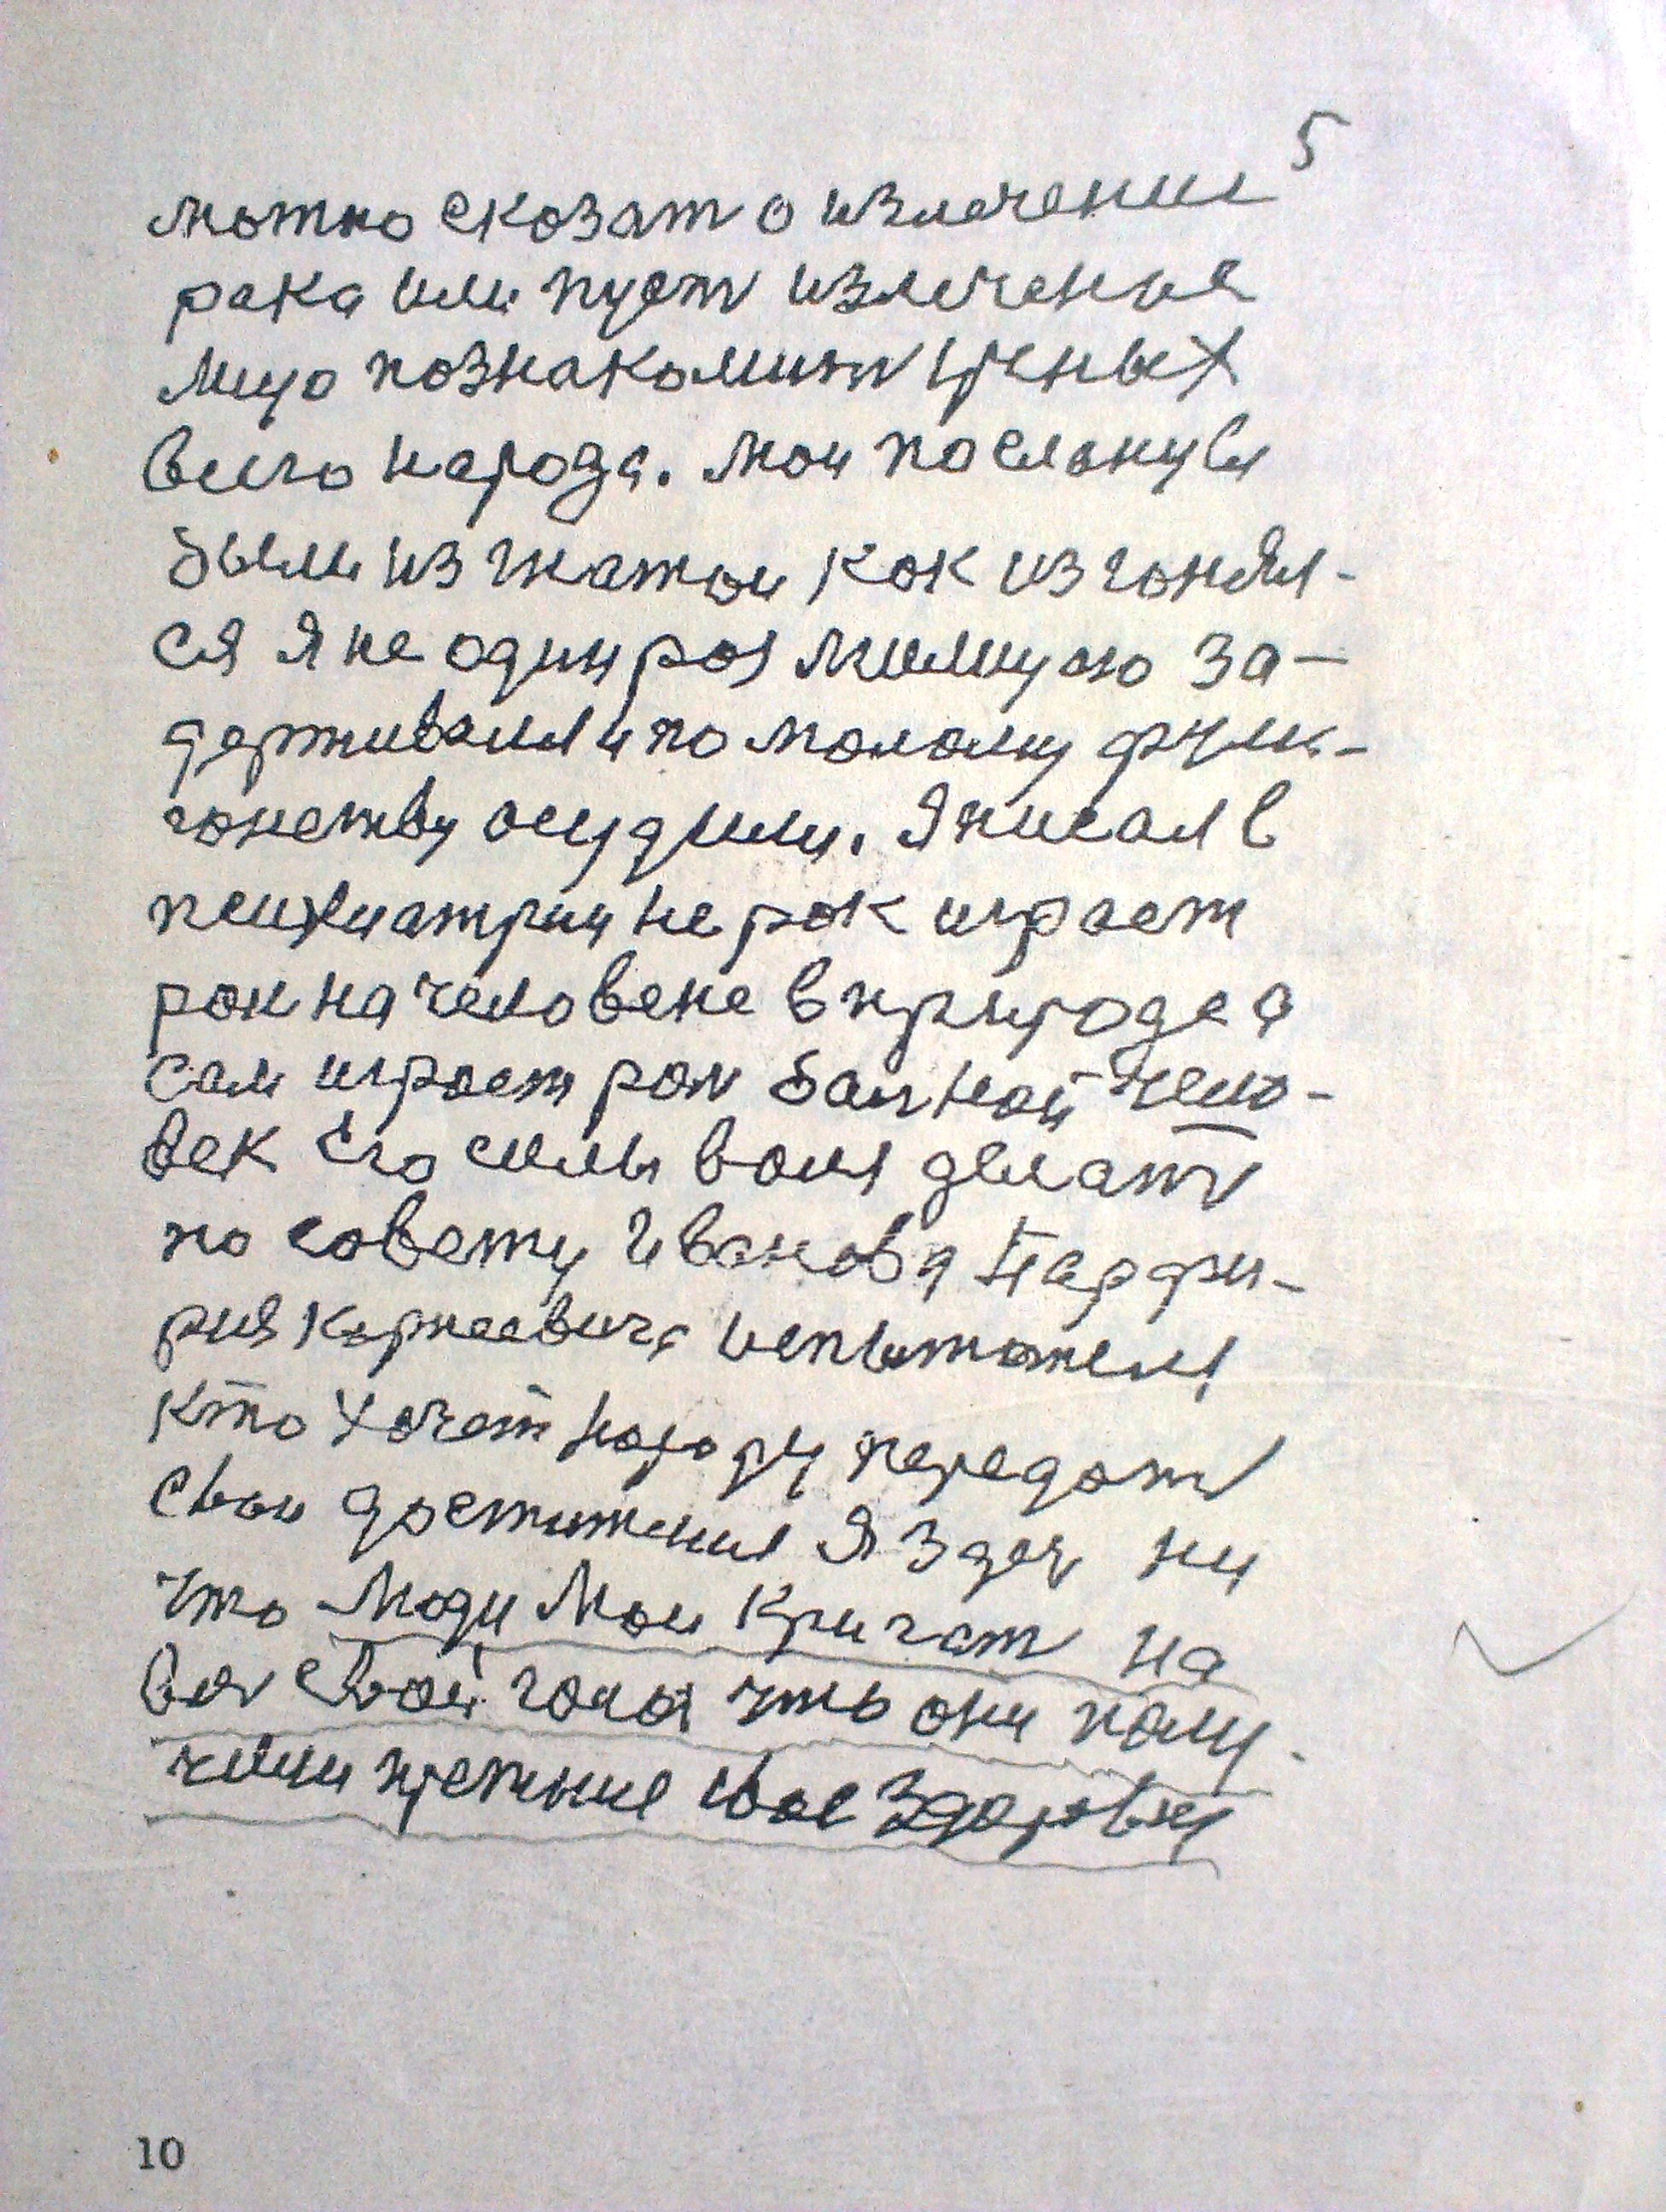 5
можно сказат о излечении
рака или пуст излеченые
лицо познакомит ученых
всиго народа. мои
были из жатои как изгонял-
ся Я не один раз милицыю за-
держивали и по малому хули-
гонству осудили. Я писал в
психиатрии не рак играет
рол на человеке в природе а
сам играет рол балной чело-
век Его силы воля делат
по совету Иванова Парфи-
рия Корнеевича испытателя
кто хочет народу передат
Свои достижения Я здес ни
что Люди Мои кричат на
вес свой голос что они полу-
чили прежние свое здоровья
10